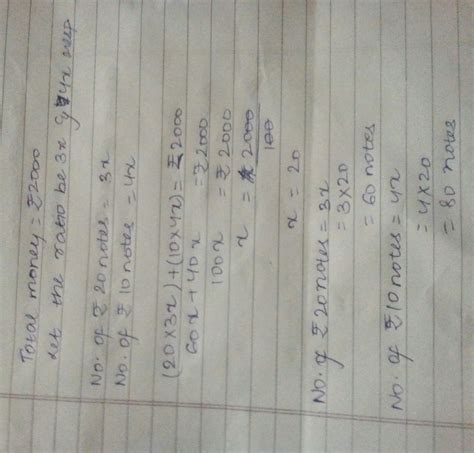 Total money = ₹2000
Let the ratio be 3x & 4x
No. of ₹ 20 notes = 3x
No. of ₹ 10 notes = 4x
(20×3x)+(10×4x)= ₹2000
60x + 40x = ₹2000
100x = ₹2000
x = 2000
100
x = 20
No. of ₹ 20 notes = 3x
= 3×20
= 60 notes
No. of ₹ 10 notes = 4x
= 4×20
= 80 notes